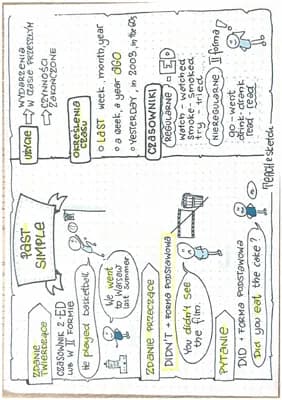 PAST
SIMPLE
ZDANIE
TWIERDZĄCE
CZASOWNIK Z -ED
LUB W II FORMIE
He played basketball.
We went
to Warsaw
last summer
ZDANIE PRZECZĄCE
DIDN'T + FORMA PODSTAWOWA
You didn't see
the film.
PYTANIE
DID + FORMA PODSTAWOWA
Did you eat the cake?
UŻYCIE
WYDARZENIA
W CZASIE PRZESZŁYM
CZYNNOŚCI
ZAKOŃCZONE
OKREŚLENIA
CZASU
LAST week, month, year
a week, a year AGO
Yesterday, in 2003, in the 60s
CZASOWNIKI
REGULARNE -ED
watch - watched
smoke - smoked
try - tried
NIEREGULARNE II forma!
go - went
drink - drank
read - read
Teach&sketch